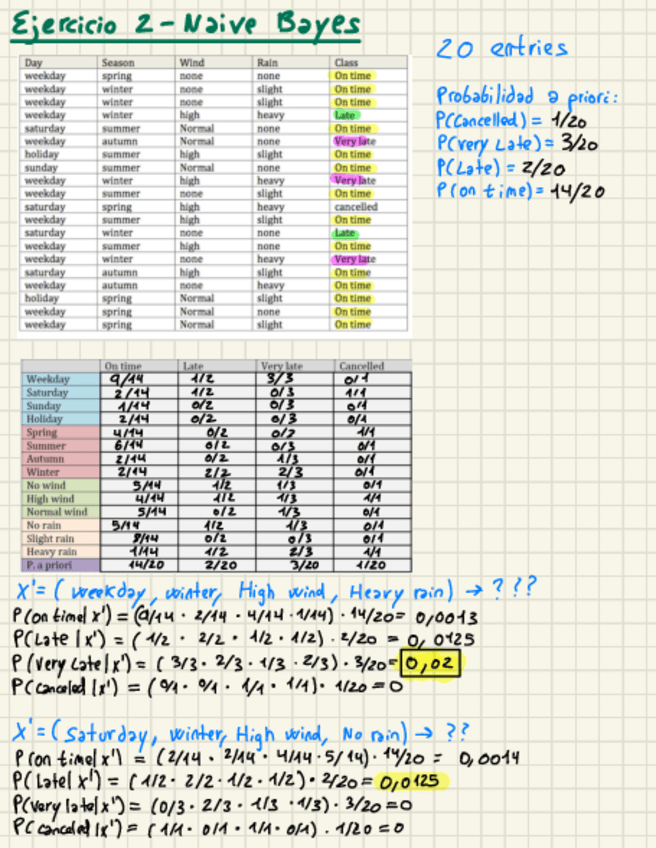 Ejercicio 2 - Naive Bayes
20 entries
Day Season Wind Rain Class
weekday spring none none On time
weekday winter none slight On time
weekday winter none slight On time
weekday winter high heavy Late
saturday summer Normal none On time
weekday autumn Normal none Very late
holiday summer high slight On time
sunday summer Normal none On time
weekday winter high heavy Very late
weekday summer none slight On time
saturday spring high heavy cancelled
weekday summer high slight On time
saturday winter none none Late
weekday summer high none On time
weekday winter none heavy Very late
saturday autumn high slight On time
weekday autumn none heavy On time
holiday spring Normal slight On time
weekday spring Normal none On time
weekday spring Normal slight On time
Probabilidad a priori:
P(Cancelled) = 1/20
P(Very Late) = 3/20
P(Late) = 2/20
P(on time) = 14/20
On time Late Very late Cancelled
Weekday 9/14 1/2 3/3 0/1
Saturday 2/14 1/2 0/3 1/1
Sunday 1/14 0/2 0/3 0/1
Holiday 2/14 0/2 0/3 0/1
Spring 4/14 0/2 0/2 1/1
Summer 6/14 0/2 0/3 0/1
Autumn 2/14 0/2 1/3 0/1
Winter 2/14 2/2 2/3 0/1
No wind 5/14 1/2 1/3 0/1
High wind 4/14 1/2 1/3 1/1
Normal wind 5/14 0/2 1/3 0/1
No rain 5/14 1/2 1/3 0/1
Slight rain 8/14 0/2 0/3 0/1
Heavy rain 1/14 1/2 2/3 1/1
P. a priori 14/20 2/20 3/20 1/20
X' = ( weekday, winter, High wind, Heavy rain) → ???
P(on time|x') = (9/14 · 2/14 · 4/14 · 1/14) · 14/20 = 0,0013
P(Late | x') = ( 1/2 · 2/2 · 1/2 · 1/2) · 2/20 = 0,0125
P (very Late|x') = ( 3/3 · 2/3 · 1/3 · 2/3) · 3/20 = 0,02
P(canceled |x') = ( 0/1 · 0/1 · 1/1 · 1/1) · 1/20 = 0
X' = ( Saturday, winter, High wind, No rain) → ??
P(on time|x') = (2/14 · 2/14 · 4/14 · 5/14) · 14/20 = 0,0014
P( Late| x') = ( 1/2 · 2/2 · 1/2 · 1/2) · 2/20 = 0,0125
P(very late|x') = (0/3 · 2/3 · 1/3 · 1/3) · 3/20 = 0
P( canceled |x') = ( 1/1 · 0/1 · 1/1 · 0/1) · 1/20 = 0